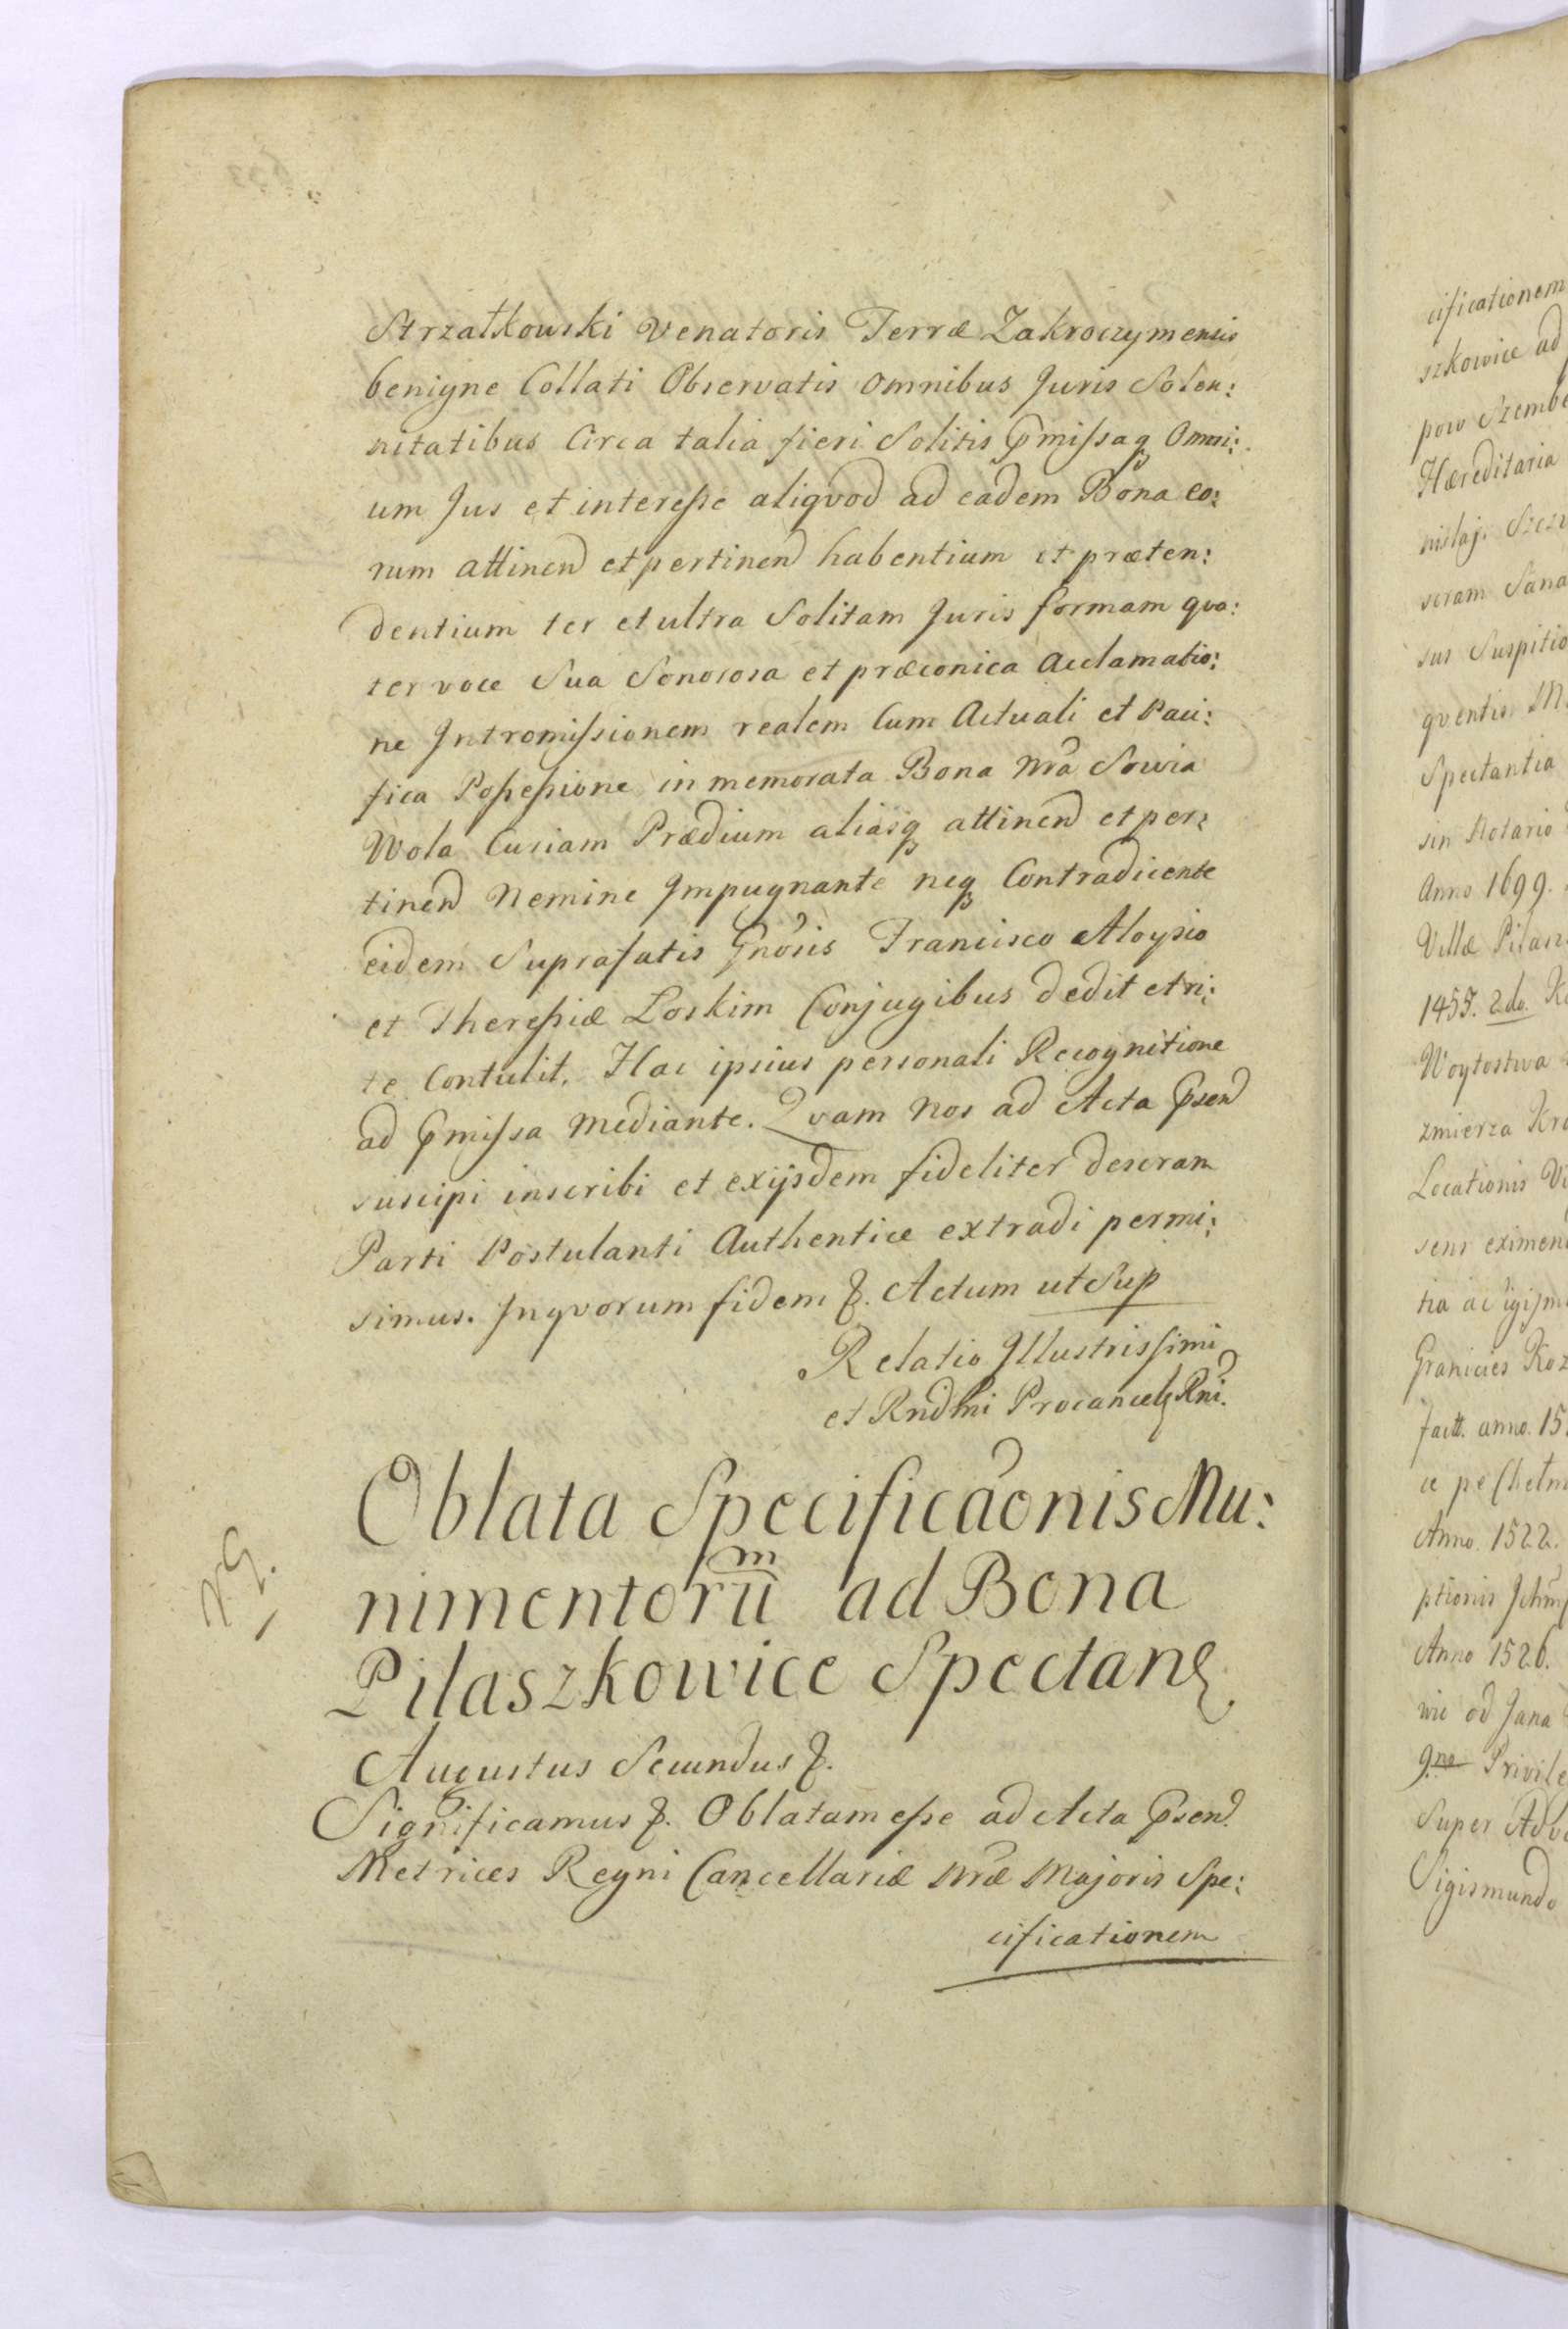 Strzałkowski Venatoris Terræ Zakroczymensis
benigne Collati Observatis Omnibus Juris Solen:
nitatibus Circa talia fieri Solitis Pmissaq Omni:
um Jus et interesse aliqvod ad eadem Bona eo:
rum attinen et pertinen habentium et præten:
dentium ter et ultra Solitam Juris formam qva:
ter voce Sua Sonorosa et præconica Acclamatio:
ne Intromissionem realem Cum Actuali et Paci:
fica Possessione in memorata Bona Nra Sowia
Wola Curiam Prædium aliasq attinen et per:
tinen Nemine Impugnante neq Contradicente
eidem Suprafatis Gnosis Francisco Aloysio
et Theressiæ Loskim Conjugibus dedit et ri:
te Contulit. Hac ipsius personali Recognitione
ad Pmissa mediante. Qvam nos ad Acta Psen
suscipi inscribi et exijsdem fideliter descram
Parti Postulanti Authentice extradi permi:
simus. Inqvorum fidem &. Actum ut Sup
Relatio Illustrissimi
et Rndmi Procancel Rni.
Oblata Specificaonis Mu:
nimentorum ad Bona
Pilaszkowice Spectan
Augustus Secundus &.
Significamus &. Oblatam esse ad Acta Psen
Metrices Regni Cancellariæ Nræ Majoris Spe:
cificationem
cificationem
szkowice ad
pow Szembe
Hæreditaria
sus Suspitio
qventis
Spectantia
sin Notario
Anno 1699.
Villæ Pilas
1455. 2do.
Woytostwa
zmierza Kro
Locationis Vi
Granicies Koz
factt. anno. 15
Anno. 1522.
ptionis
Anno 1526.
wie od Jana
9.no Privile
Super Advo
Sigismundo